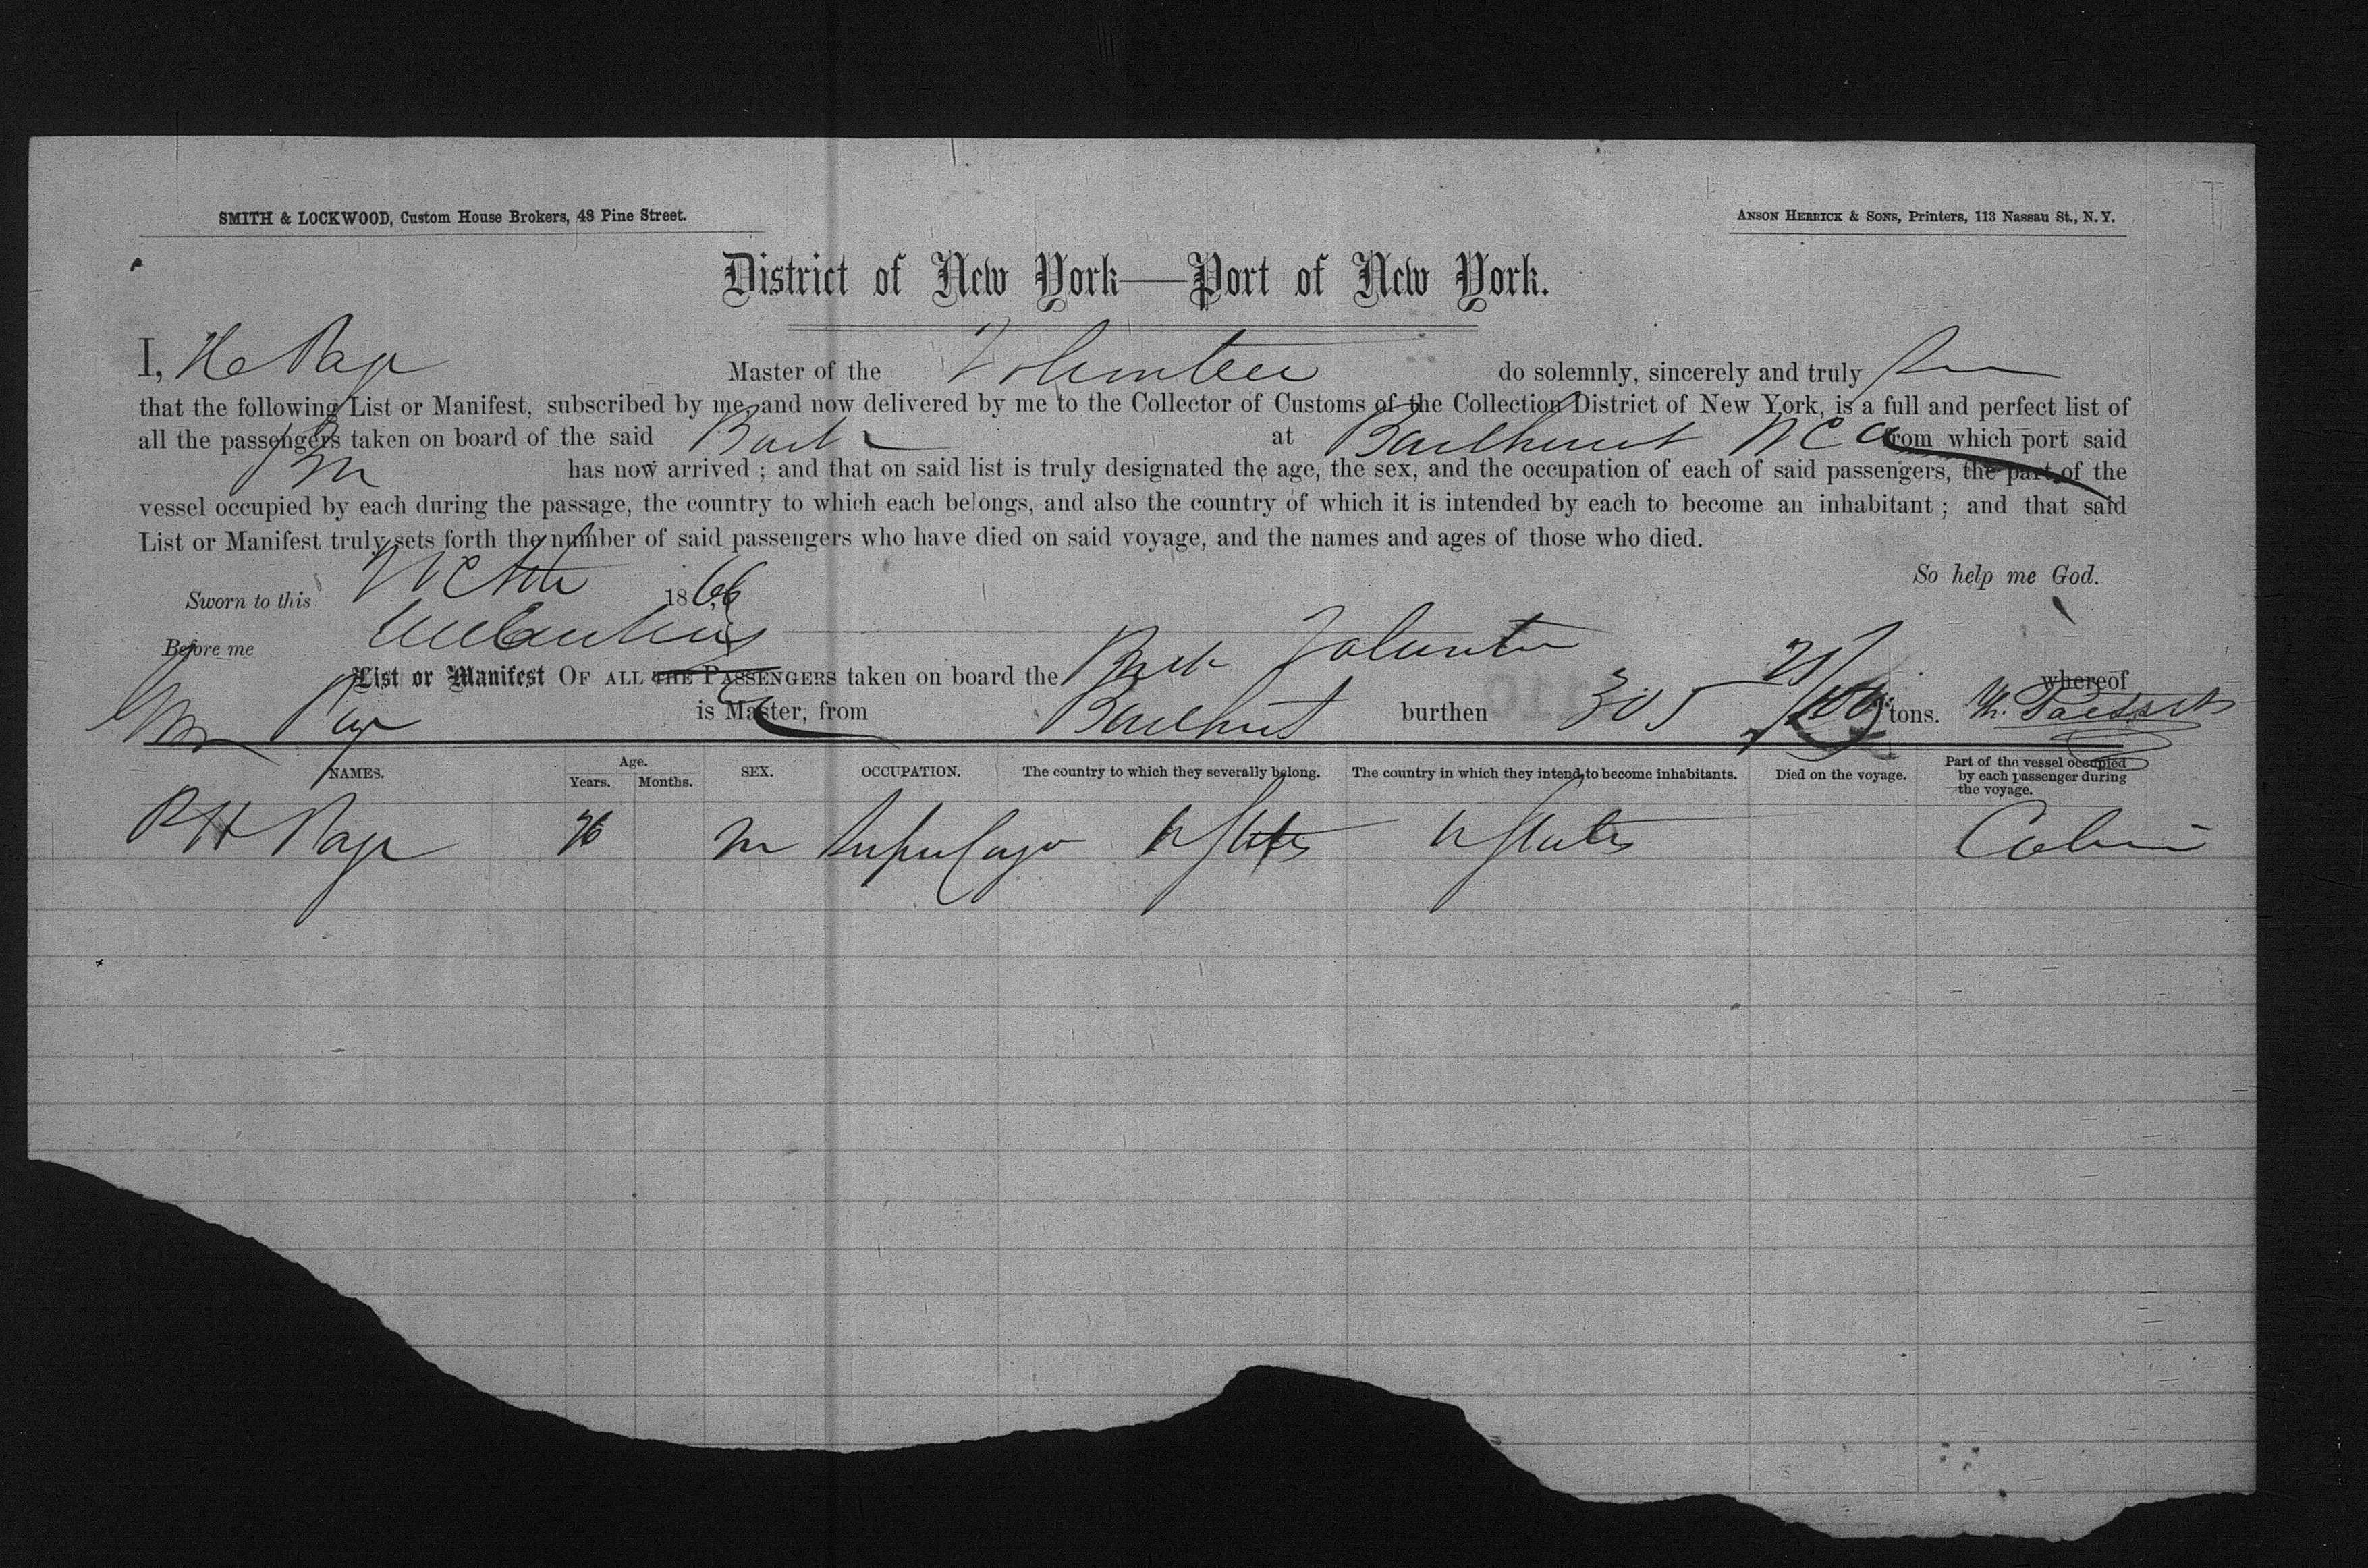 SMITH & LOCKWOOD, Custom House Brokers, 48 Pine Street.
ANSON HERRICK & SONS, Printers, 113 Nassau St., N. Y.
District of New York—Port of New York.
I, Page Master of the Volunteer do solemnly, sincerely and truly
that the following List or Manifest, subscribed by me and now delivered by me to the Collector of Customs of the Collection District of New York, is a full and perfect list of
all the passengers taken on board of the said Bark at W C A from which port said
has now arrived ; and that on said list is truly designated the age, the sex, and the occupation of each of said passengers, the part of the
vessel occupied by each during the passage, the country to which each belongs, and also the country of which it is intended by each to become an inhabitant ; and that said
List or Manifest truly sets forth the number of said passengers who have died on said voyage, and the names and ages of those who died.
So help me God.
Sworn to this 1866
Before me
List or Manifest OF ALL THE PASSENGERS taken on board the Bark Volunteer whereof
Page is Master, from burthen 305 /100 tons.
NAMES. Age. Years. Months. SEX. OCCUPATION. The country to which they severally belong. The country in which they intend to become inhabitants. Died on the voyage. Part of the vessel occupied by each passenger during the voyage.
R H Page M Supercargo U States U States Cabin